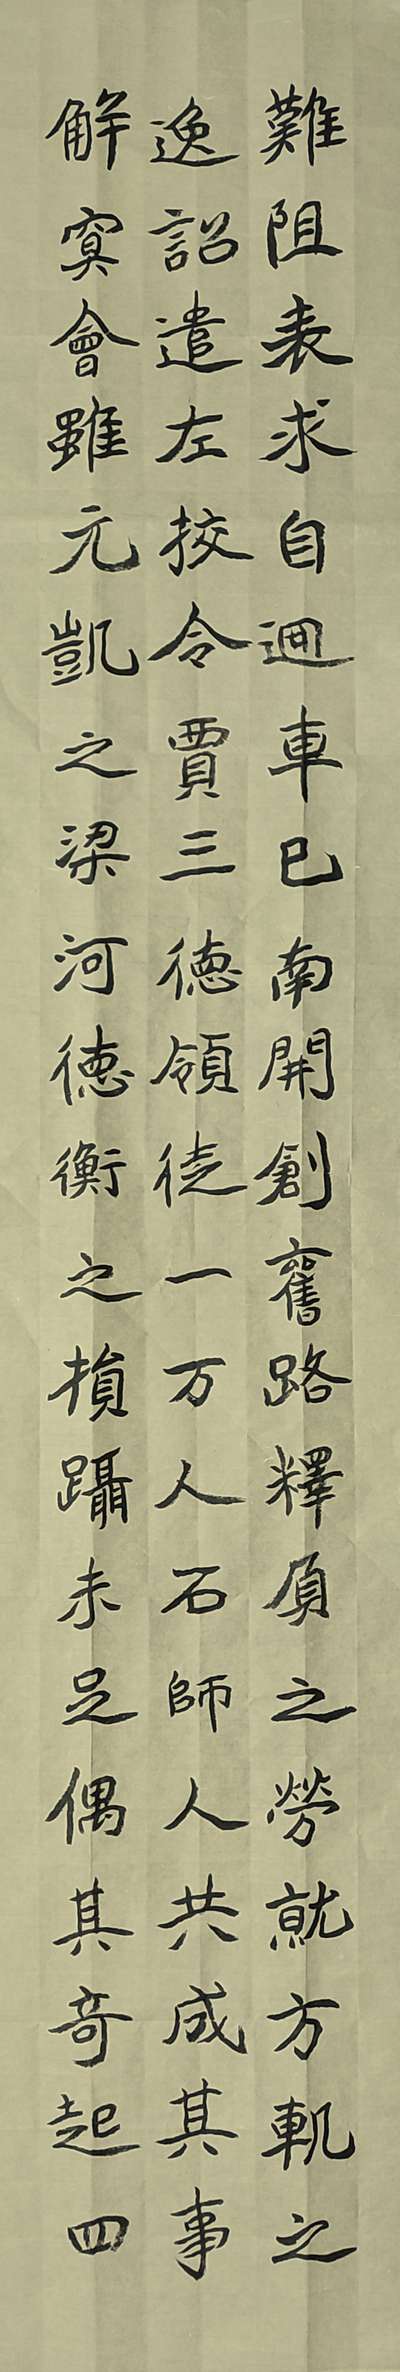 難阻表求自迴車已南開創舊路釋負之勞就方軌之
逸詔遣左挍令賈三德領徒一万人石師人共成其事
解㝠會雖元凱之梁河德衡之損躡未足偶其奇起四